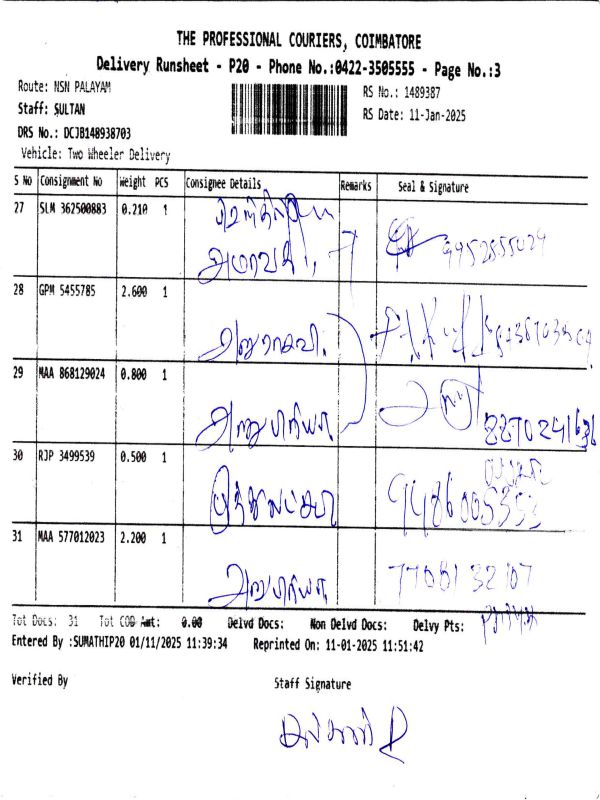 THE PROFESSIONAL COURIERS, COIMBATORE
Delivery Runsheet - P20 - Phone No.:0422-3505555 - Page No.:3
Route: NSN PALAYAM RS No.: 1489387
Staff: SULTAN RS Date: 11-Jan-2025
DRS No.: DCJB148938703
Vehicle: Two Wheeler Delivery
S No Consignment No Weight PCS Consignee Details Remarks Seal & Signature
27 SLM 362500883 0.210 1
அமராவதி, 9952855029
28 GPM 5455785 2.600 1
அனுராகவி.
29 MAA 868129024 0.800 1
அனுபிரியா 8870241636
30 RJP 3499539 0.500 1
முத்துலட்சுமி 9486005353
31 MAA 577012023 2.200 1
அனுபிரியா 7708132107
Priya
Tot Docs: 31 Tot COD Amt: 0.00 Delvd Docs: Non Delvd Docs: Delvy Pts:
Entered By :SUMATHIP20 01/11/2025 11:39:34 Reprinted On: 11-01-2025 11:51:42
Verified By Staff Signature